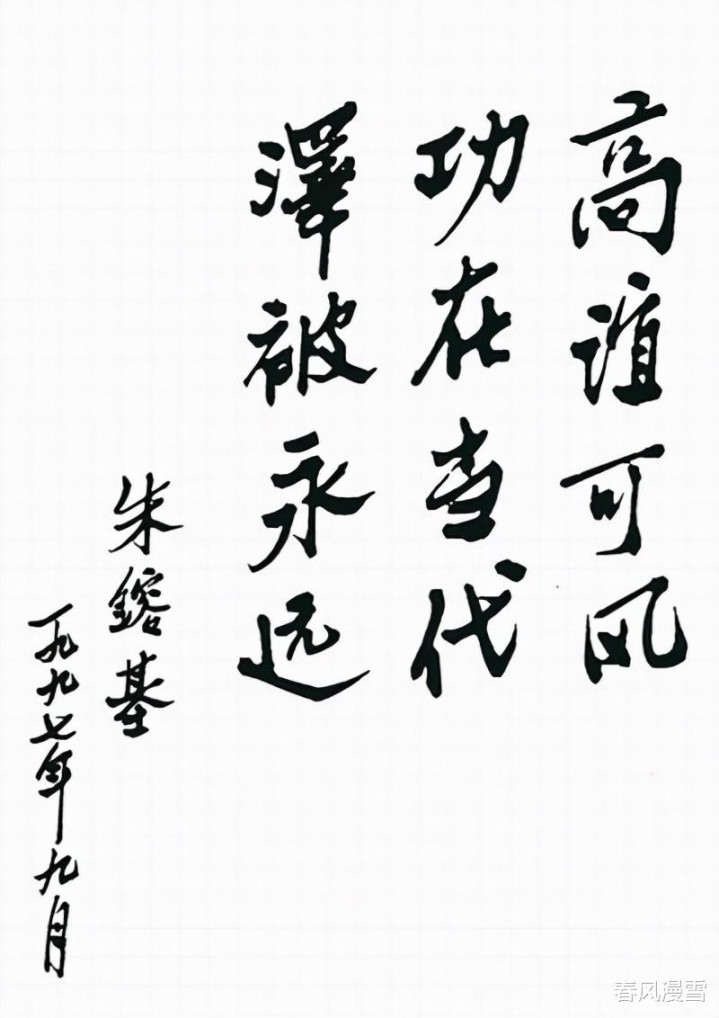 高谊可风
功在当代
澤被永远
朱鎔基
一九九七年九月
春风漫雪